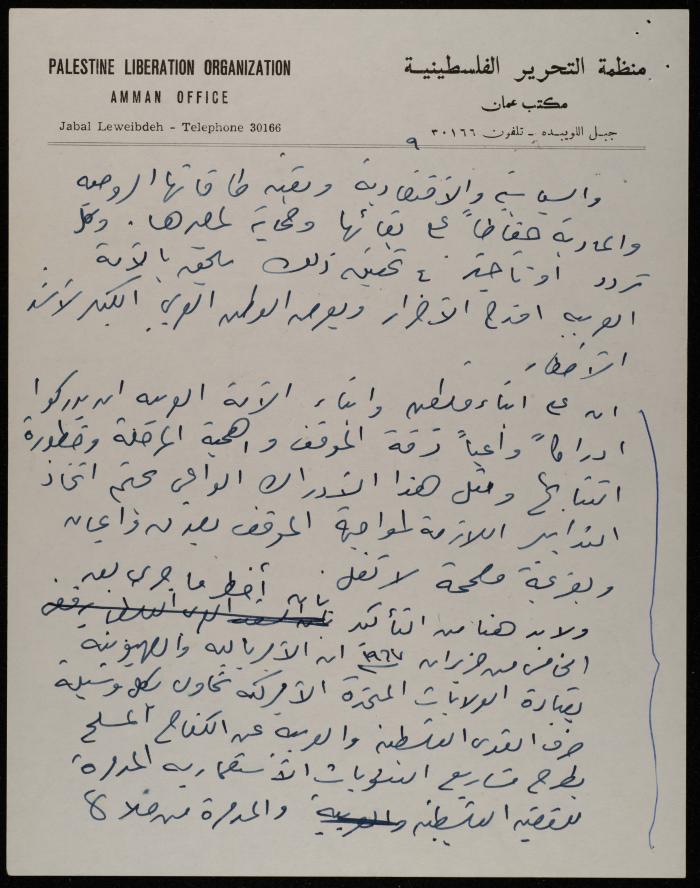 PALESTINE LIBERATION ORGANIZATION
AMMAN OFFICE
Jabal Leweibdeh - Telephone 30166
منظمة التحرير الفلسطينية
مكتب عمان
جبـل اللويبده ـ تلفون ٣٠١٦٦
٩
والسياسية والاقتصادية وتعبئة طاقاتها الروحية
والمادية حفاظاً على بقائها وحماية لمصيرها . وكل
تردد او تأخير في تحقيق ذلك يلحق بالأمة
العربيه افدح الأضرار ويعرض الوطن العربي الكبير لأشد
الأخطار
ان على ابناء فلسطين وابناء الأمة العربيه ان يدركوا
ادراكاً واعياً دقة الموقف واهمية المرحلة وخطورة
النتائج ومثل هذا الأدراك الواعي يحتم اتخاذ
التدابير اللازمة لمواجهة الموقف بصدق وايمان
وبعزيمة مصممة لا تفل .
ولا بد هنا من التأكيد بأن أخطر ما جرى بعد
الخامس من حزيران ١٩٦٧ ان الأمبريالية والصهيونية
بقيادة الولايات المتحدة الأمريكية تحاول بكل وسيلة
صرف القوى الفلسطينية والعربيه عن الكفاح المسلح
بطرح مشاريع التسويات الأستعماريه المدمرة
للقضية الفلسطينية والعربية والمدمرة من خلالها